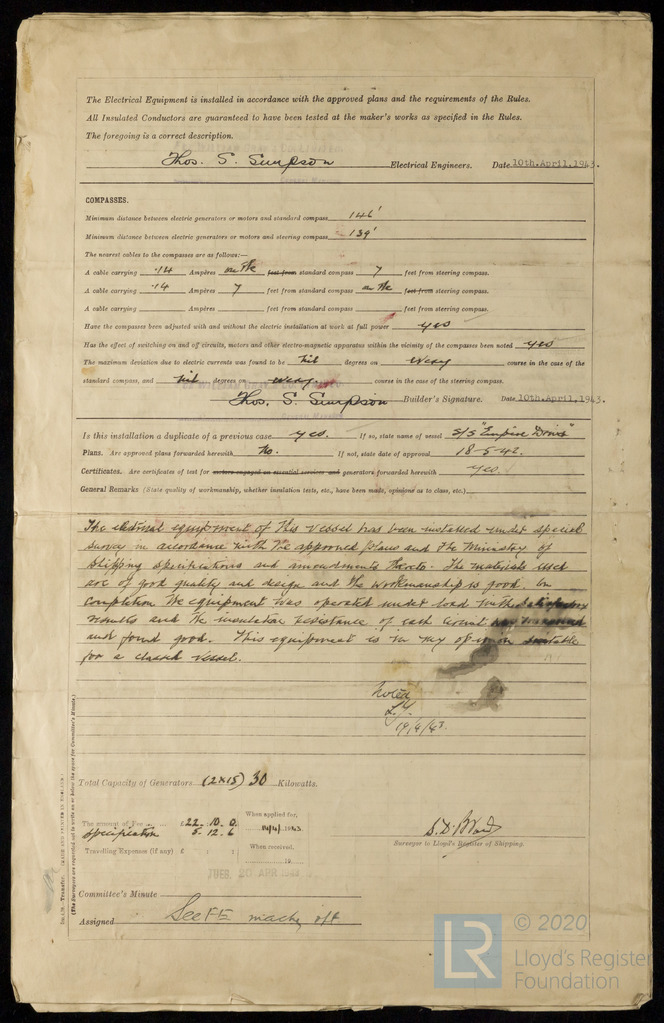 The Electrical Equipment is installed in accordance with the approved plans and the requirements of the Rules.
All Insulated Conductors are guaranteed to have been tested at the maker's works as specified in the Rules.
The foregoing is a correct description.
Thos. S. Simpson Electrical Engineers. Date 10th.April,1943.
COMPASSES.
Minimum distance between electric generators or motors and standard compass 146'
Minimum distance between electric generators or motors and steering compass 139'
The nearest cables to the compasses are as follows:—
A cable carrying .14 Ampères on the feet from standard compass 7 feet from steering compass.
A cable carrying .14 Ampères 7 feet from standard compass on the feet from steering compass.
A cable carrying Ampères feet from standard compass feet from steering compass.
Have the compasses been adjusted with and without the electric installation at work at full power yes
Has the effect of switching on and off circuits, motors and other electro-magnetic apparatus within the vicinity of the compasses been noted yes
The maximum deviation due to electric currents was found to be Nil degrees on every course in the case of the
standard compass, and nil degrees on every course in the case of the steering compass.
Thos. S. Simpson Builder's Signature. Date 10th.April,1943.
Is this installation a duplicate of a previous case yes. If so, state name of vessel S/S "Empire
Plans. Are approved plans forwarded herewith No. If not, state date of approval 18-5-42.
Certificates. Are certificates of test for motors engaged on essential services and generators forwarded herewith yes.
General Remarks (State quality of workmanship, whether insulation tests, etc., have been made, opinions as to class, etc.)
The electrical equipment of this vessel has been installed under special
survey in accordance with the approved plans and the Ministry of
Shipping specifications and amendments thereto. The materials used
are of good quality and design and the workmanship is good. On
completion the equipment was operated under load with satisfactory
results and the insulation resistance of each circuit
and found good. This equipment is in my opinion suitable
for a classed vessel.
Noted
19/4/43.
Total Capacity of Generators (2x15) 30 Kilowatts.
The amount of Fee £22 : 10 : 0
When applied for, 14/4/1943.
Specification 5. 12. 6
Travelling Expenses (if any) £ : :
When received, 19
Surveyor to Lloyd's Register of Shipping.
TUES. 20 APR 1943
Committee's Minute
Assigned See FE machy rpt
(The Surveyors are requested not to write on or below the space for Committee's Minute.)
© 2020
LR
Lloyd's Register
Foundation